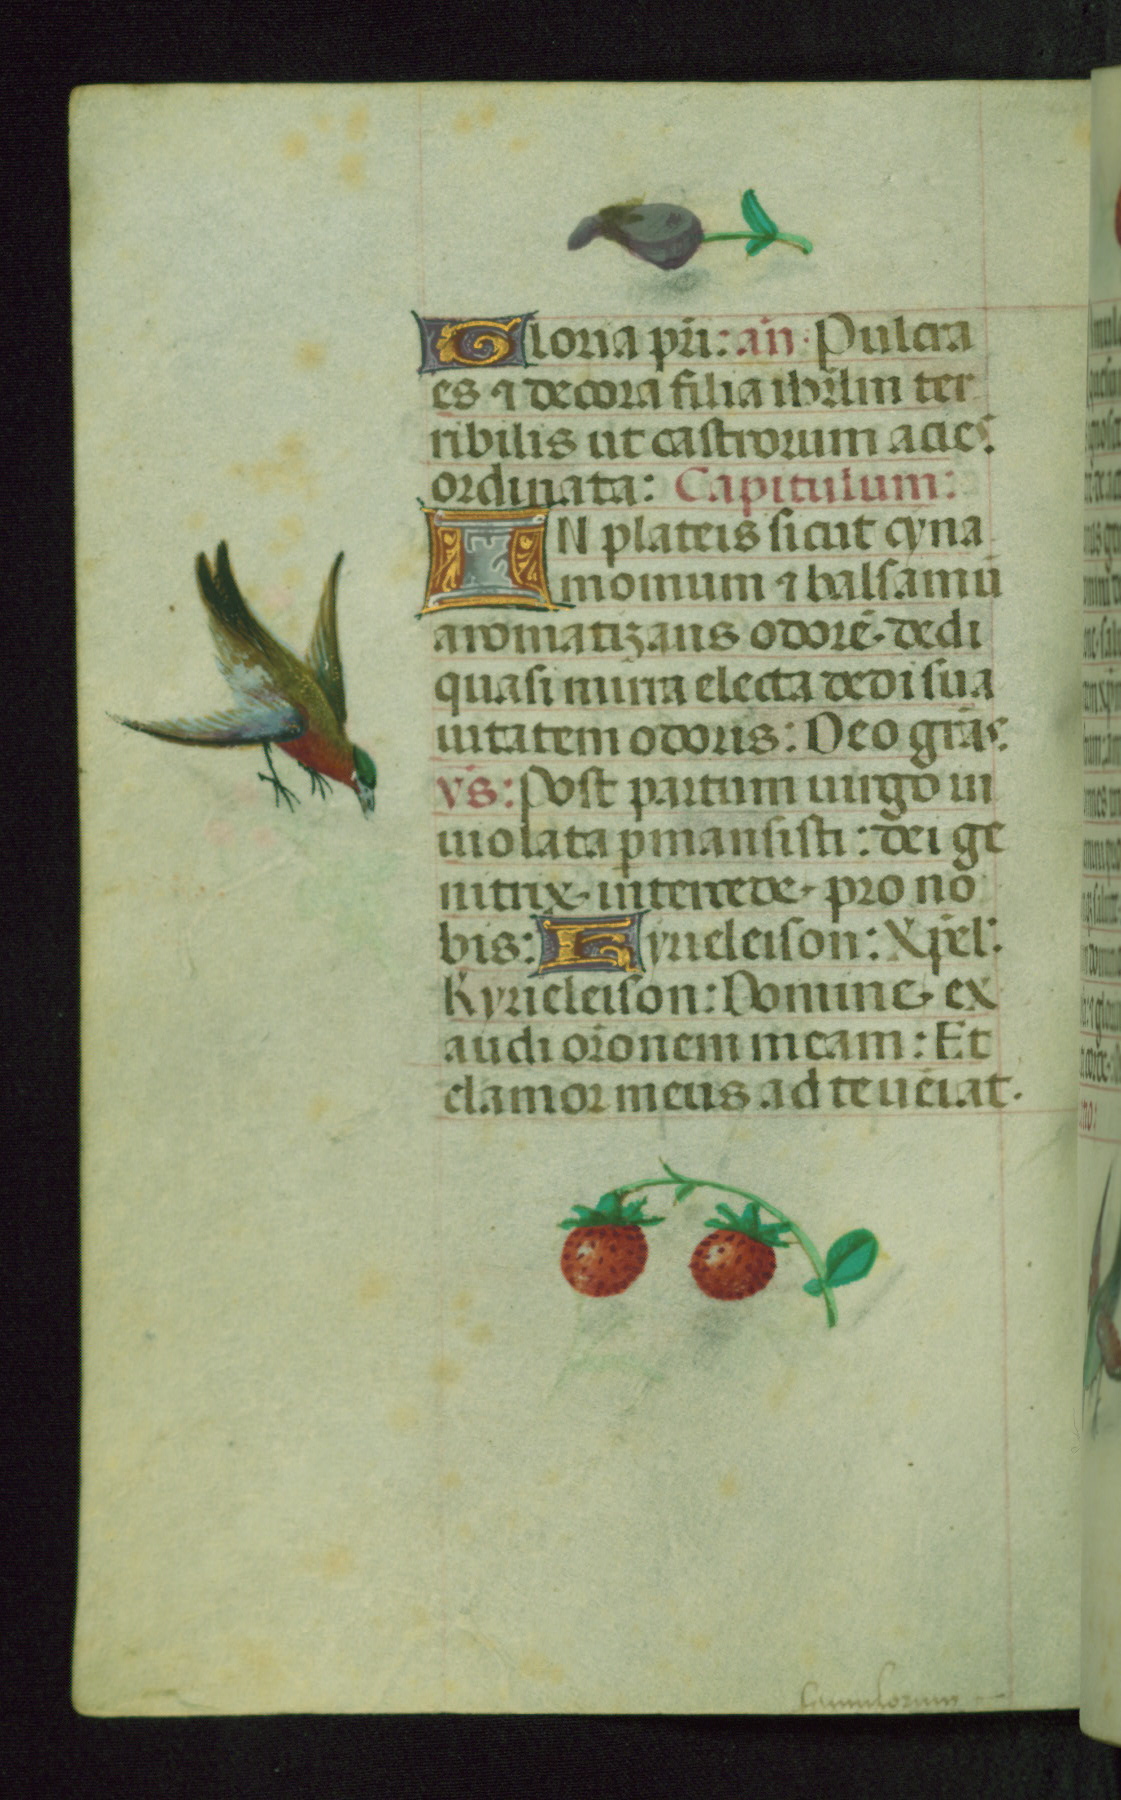 Gloria pr̄i: an̄· Pulcra
es ⁊ decora filia ihr̄lm ter
ribilis ut castrorum acies:
ordinata: Capitulum:
IN plateis sicut cyna
momum ⁊ balsamū
aromatizans odorē· dedi
quasi mirra electa dedi sua
uitatem odoris: Deo grās:
vs̄: Post partum uirgo in
uiolata pmansisti: dei ge
nitrix· intercede· pro no
bis: Kyrieleison: Xp̄el:
Kyrieleison: Domine· ex
audi or̄onem meam: Et
clamor meus ad te uēiat·
famulorum